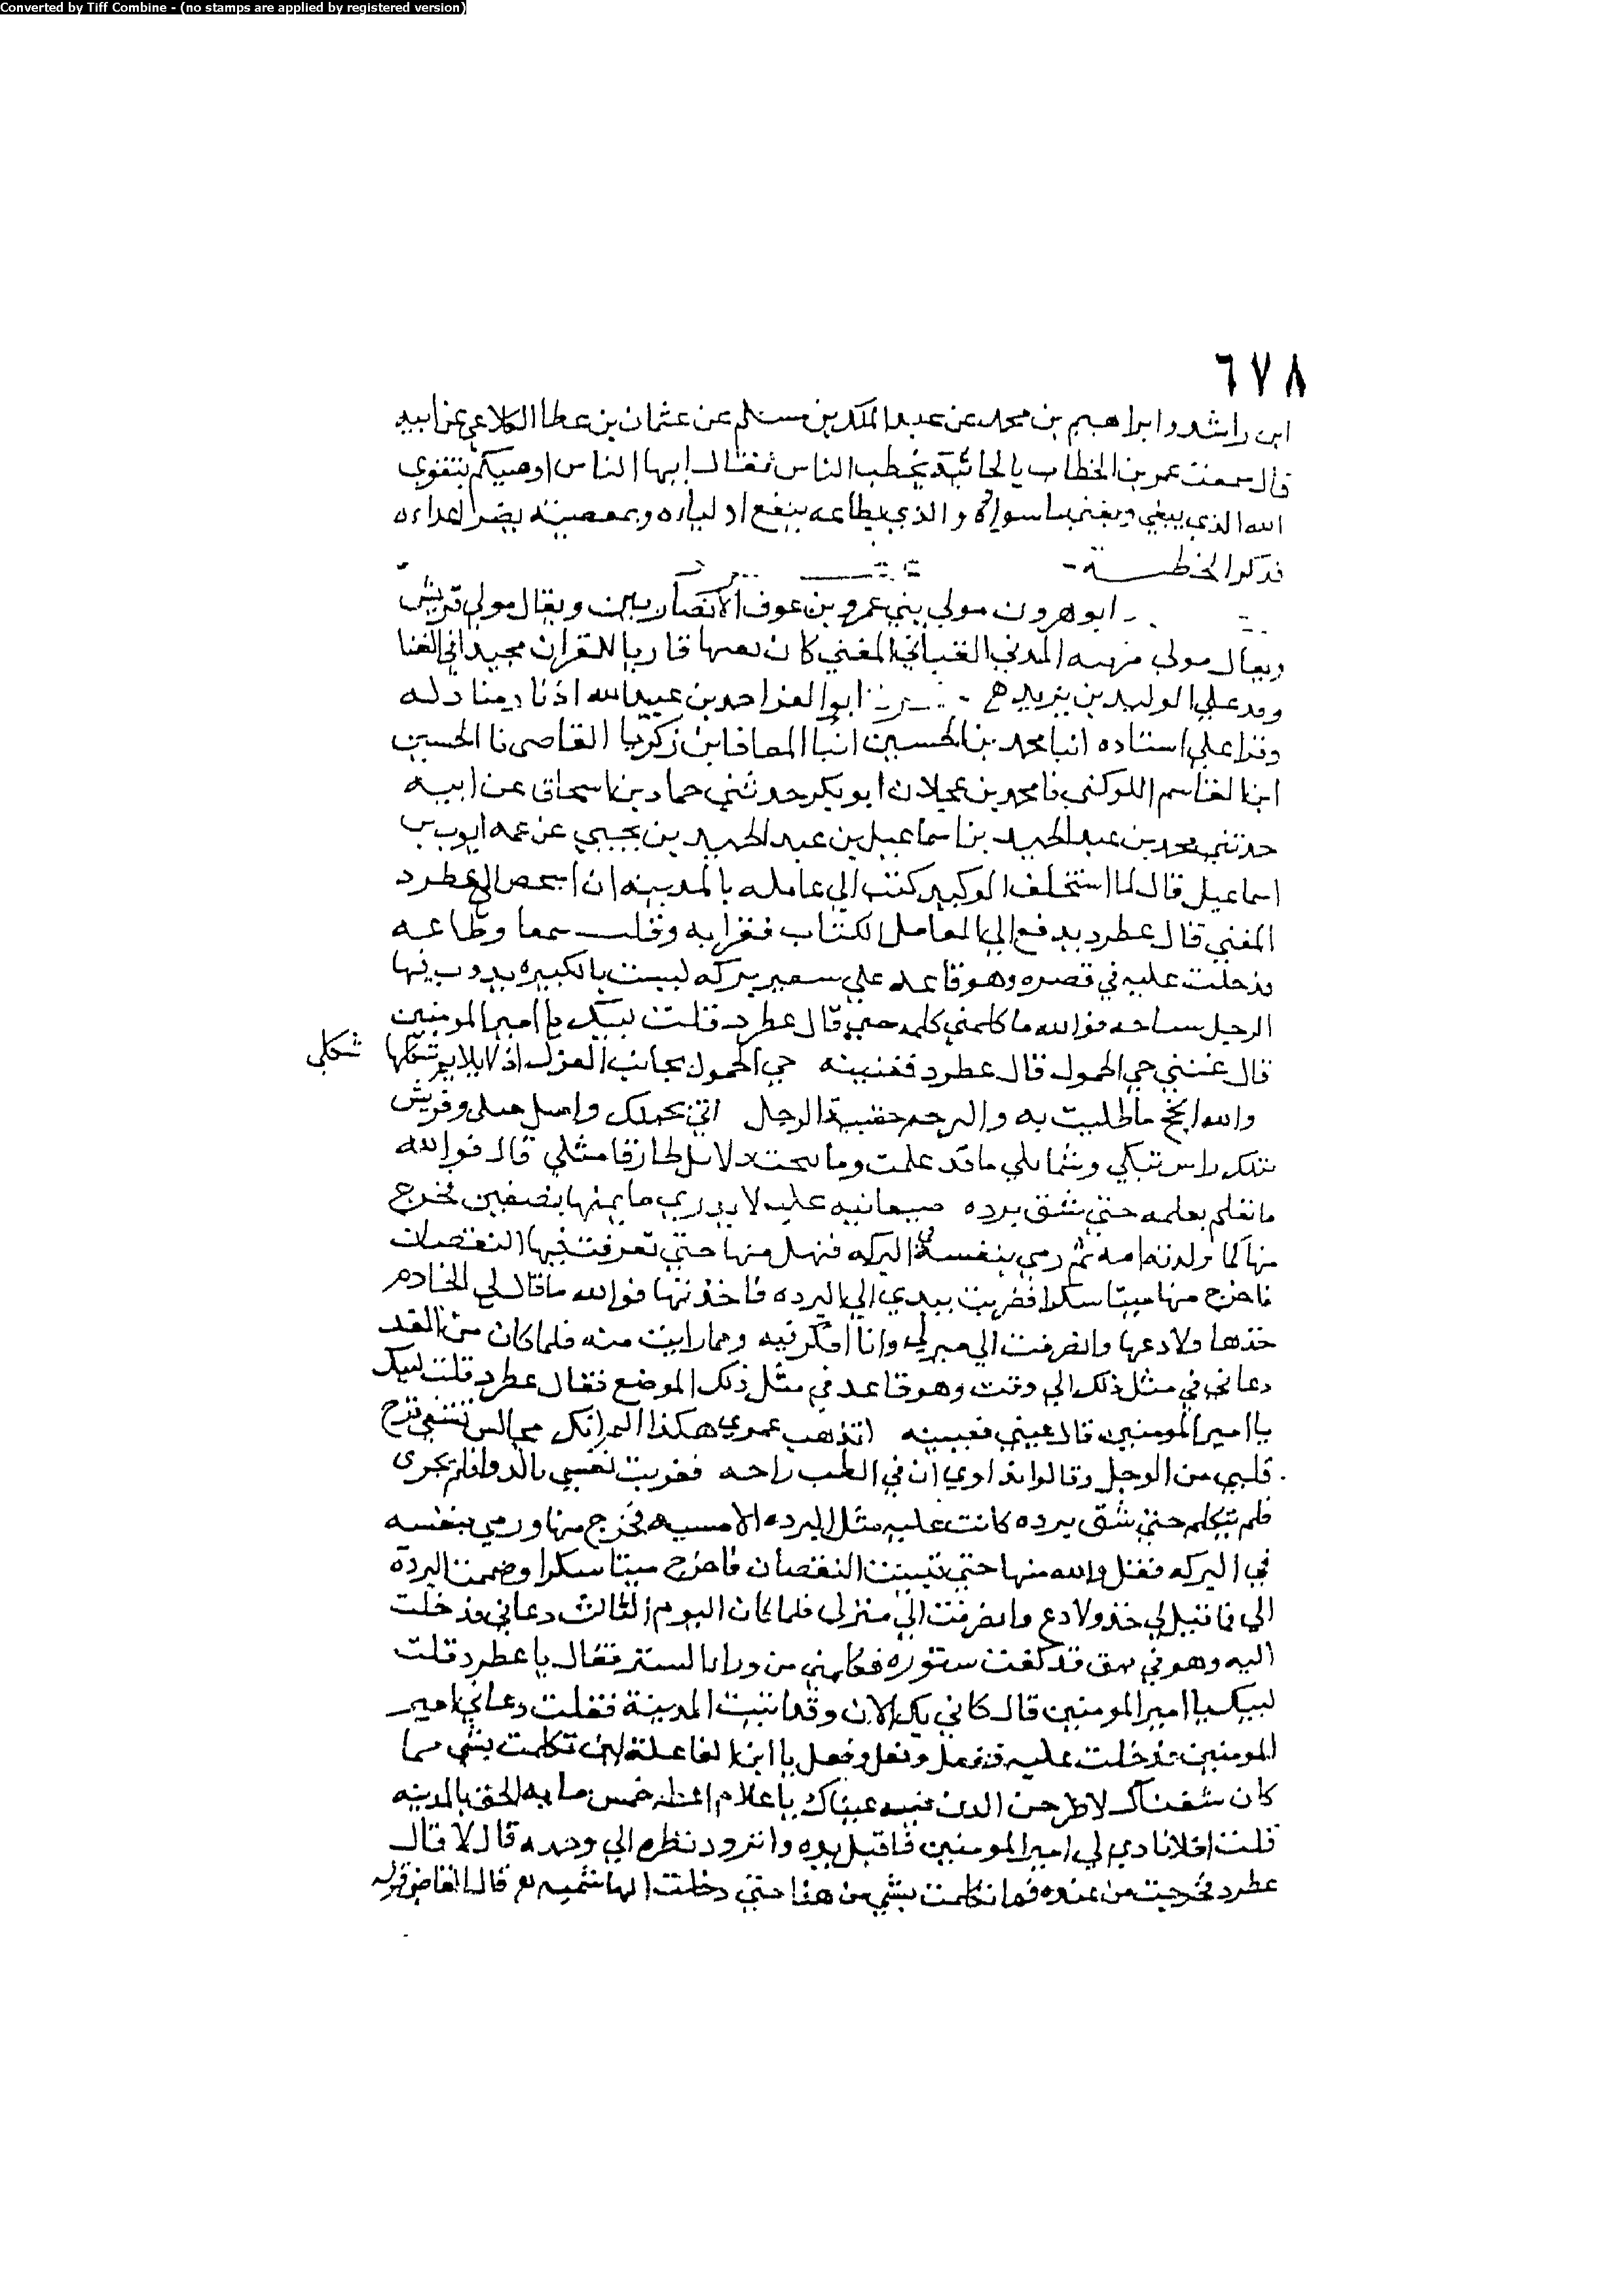 Converted by Tiff Combine - (no stamps are applied by registered version)
٦٧٨
ابن راشد وابراهيم بن محمد عن عبد الملك بن مسلم عن عثمان بن عطا الكلاعي عن ابيه
قال سمعت عمر بن الخطاب بالجابية يخطب الناس فقال ايها الناس اوصيكم بتقوى
الله الذي يبقي ويفني ما سواه والذي بطاعه ينفع اولياءه وبمعصيته يضر اعداءه
فذكر الخطبة
ابو هرون مولى بني عمرو بن عوف الانصاريين ويقال مولى قريش
ويقال مولى مزينه المدني القباني المغني كان فقيها قاريا للقران مجيدا في الغنا
وفد علي الوليد بن يزيد ابو العز احمد بن عبيد الله اذنا ومناوله
وقرا علي استاده انبا محمد بن الحسين انبا المعافا بن زكريا القاضي نا الحسين
ابن القاسم الكوكبي نا محمد بن عجلان ابو بكر حدثني حماد بن اسحاق عن ابيه
حدثني محمد بن عبد الحميد بن اسماعيل بن عبد الحميد بن يحيي عن عمه ايوب بن
اسماعيل قال لما استخلف الوليد كتب الي عامله بالمدينه ان اشخص الي عطرد
المغني قال عطرد فدفع الي العامل الكتاب فقرابه وقلت سمعا وطاعه
فدخلت عليه في قصره وهو قاعد علي شفير بركه ليست بالكبيره يدور فيها
الرجل سباحه فوالله ما كلمني كلمه حتي قال عطرد قلت لبيك يا امير المومنين
قال غنني حي الحمول قال عطرد فغنيته حي الحمول بجانب العزل اذ لا يلايم شكلها شكلي
والله انجح ما طلبت به والبر خير حقيبة الرحل اني بحبلك واصل حبلي وبريش
نبلك رايش نبلي وشمايلي ما قد علمت وما نبحت كلابك طارقا مثلي قال فوالله
ما تكلم بكلمه حتي شق برده صنعانيه عليه لا يدري ما ثمنها بنصفين فخرج
منها كما ولدته امه ثم رمي بنفسه في البركه فنهل منها حتي تعرفت فيها النقصان
فاخرج منها ميتا سكرا فضربت بيدي الي البرده فاخذتها فوالله ما قال لي الخادم
خذها ولا دعها وانصرفت الي منزلي وانا افكر فيه ومما رايت منه فلما كان من الغد
دعاني في مثل ذلك الوقت وهو قاعد في مثل ذلك الموضع فقال عطرد قلت لبيك
يا امير المومنين قال غنني فغنيته ايذهب عمري هكذا لم انل مجالس تشفي قرح
قلبي من الوجل وقالوا تداوي ان في الطب راحه فعزيت نفسي بالدوا فلم يجدي
فلم يتكلم حتي شق برده كانت عليه مثل البرده الامسيه فخرج منها ورمي بنفسه
في البركه فنهل والله منها حتي تبينت النقصان فاخرج ميتا سكرا وضممت البرده
الي فما قيل لي خذ ولا دع وانصرفت الي منزلي فلما كان اليوم الثالث دعاني فدخلت
اليه وهو في بهو قد كفت ستوره فكلمني من ورا الستر فقال يا عطرد قلت
لبيك يا امير المومنين قال كاني بك الان وقد اتيت المدينة فقلت دعاني امير
المومنين فدخلت عليه ففعل وفعل وفعل يا ابن الفاعلة لين تكلمت بشي مما
كان شفتاك لاطرحن الذي فيه عيناك يا غلام اعطه خمس مايه الحق بالمدينه
قلت افلا نادي لي امير المومنين فاقبل يده واتزود نظره الي وجهه قال لا قال
عطرد فخرجت من عنده فما تكلمت بشي من هذا حتي دخلت الهاشميه قال القاضي قوله